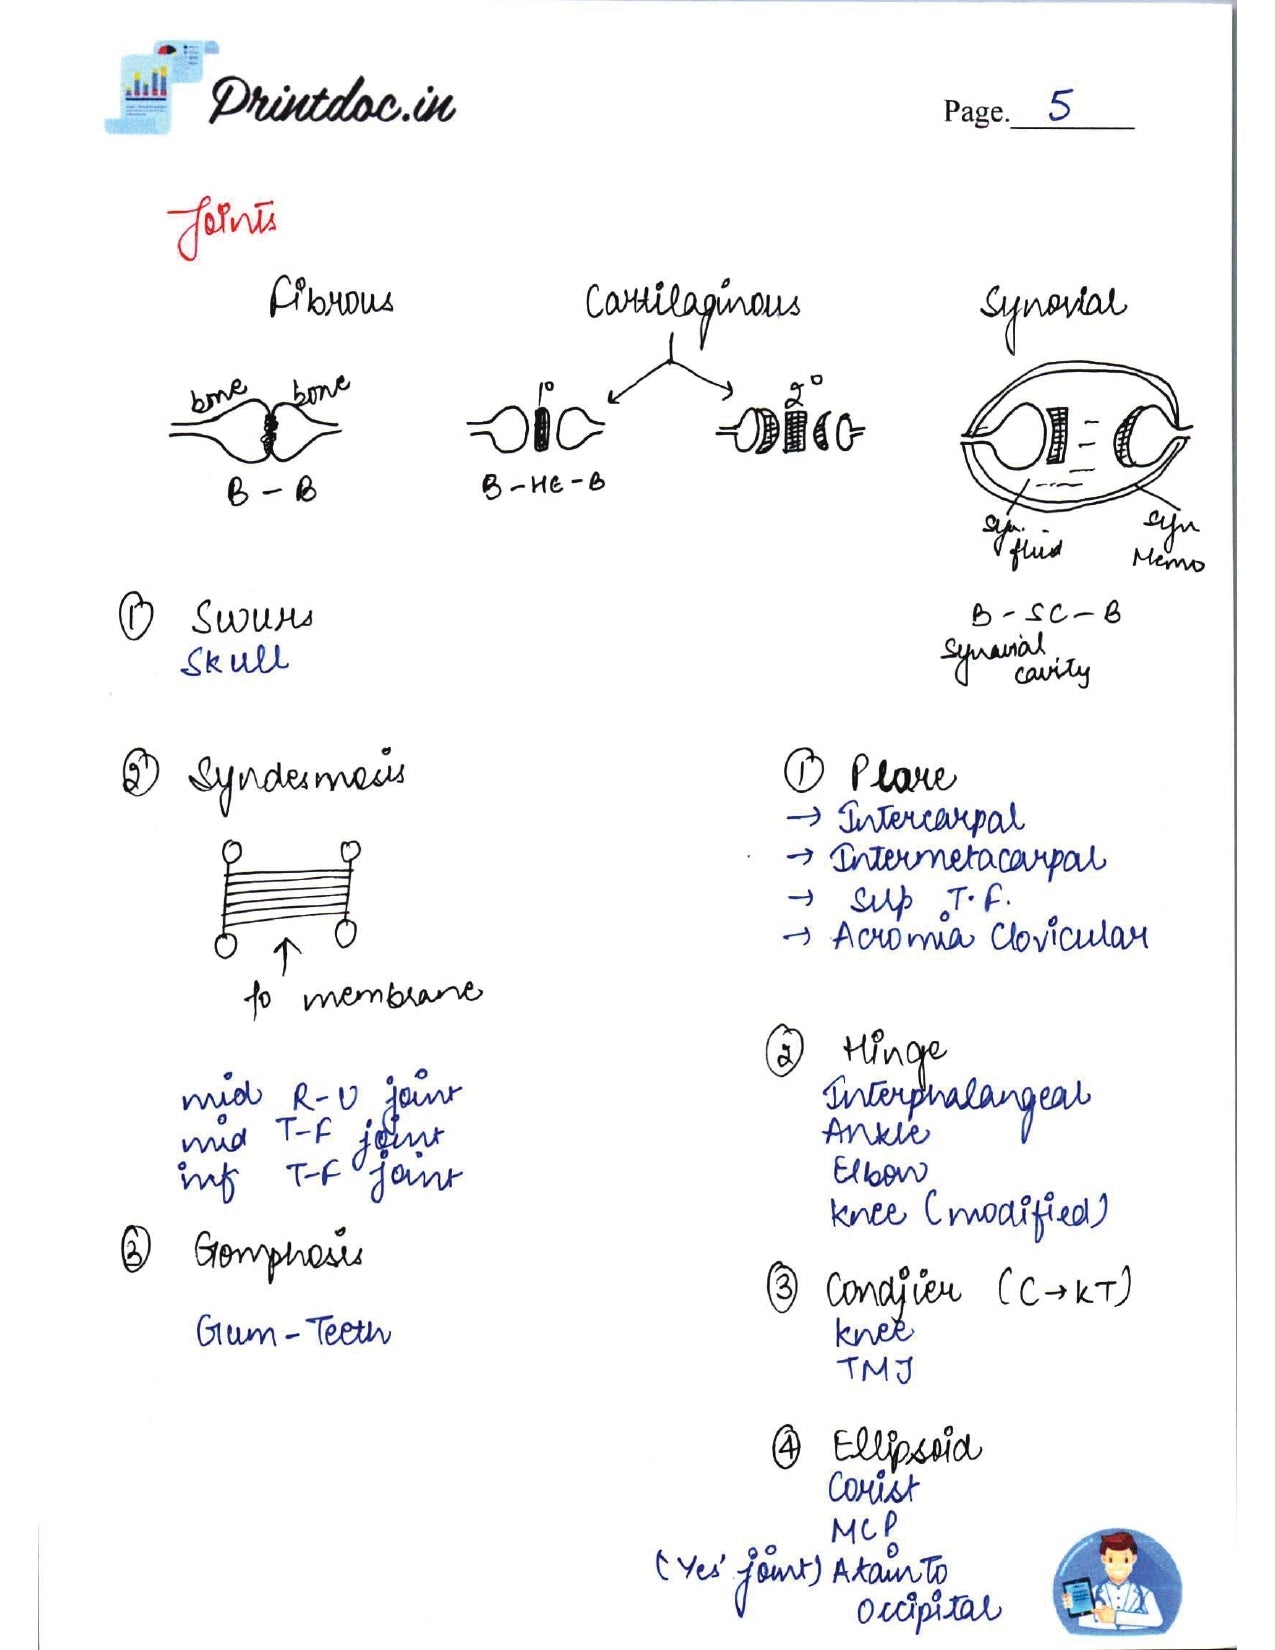 Printdoc.in
Page. 5
Joints
Fibrous
Cartilaginous
Synovial
bone bone
1°
2°
B - B
B - HC - B
Syn. fluid
Syn Memo
B - SC - B
Synovial cavity
① Sutures
Skull
② Syndesmosis
membrane
mid R-U joint
mid T-F joint
inf T-F joint
③ Gomphosis
Gum - Teeth
① Plane
→ Intercarpal
→ Intermetacarpal
→ Sup T.F.
→ Acromio Clavicular
② Hinge
Interphalangeal
Ankle
Elbow
Knee (modified)
③ (C → KT)
Knee
TMJ
④ Ellipsoid
MCP
(Yes' joint)
Occipital